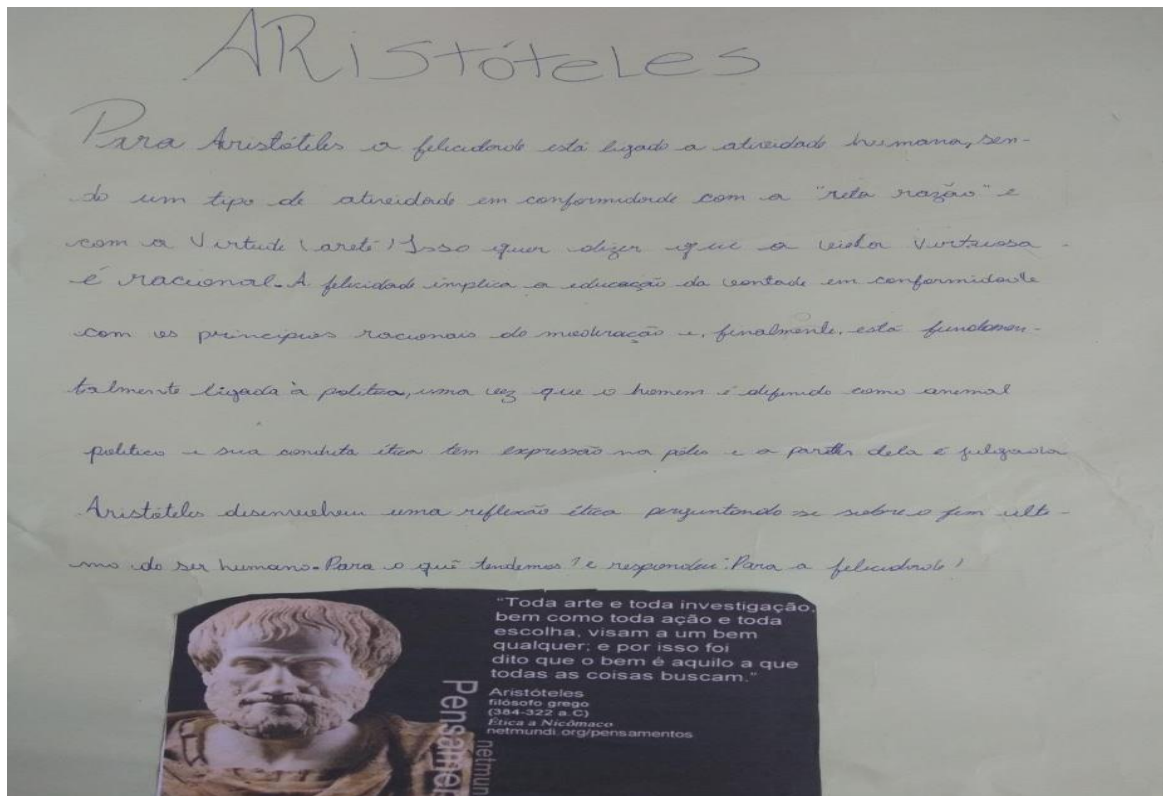 ARistóteles
Para Aristóteles a felicidade está ligado a atividade humana, sen-
do um tipo de atividade em conformidade com a "reta razão" e
com a Virtude (areté) Isso quer dizer que a vida Virtuosa
é racional. A felicidade implica a educação da vontade em conformidade
com os princípios racionais de moderação e, finalmente, está fundamen-
talmente ligada à política, uma vez que o homem é definido como animal
político e sua conduta ética tem expressão na pólis e a partir dela é julgada
Aristóteles desenvolveu uma reflexão ética perguntando-se sobre o fim ulti-
mo do ser humano. Para o quê tendemos? e respondeu: Para a felicidade!
"Toda arte e toda investigação,
bem como toda ação e toda
escolha, visam a um bem
qualquer; e por isso foi
dito que o bem é aquilo a que
todas as coisas buscam."
Aristóteles
filósofo grego
(384-322 a.C)
Ética a Nicômaco
netmundi.org/pensamentos
Pensamen
netmun